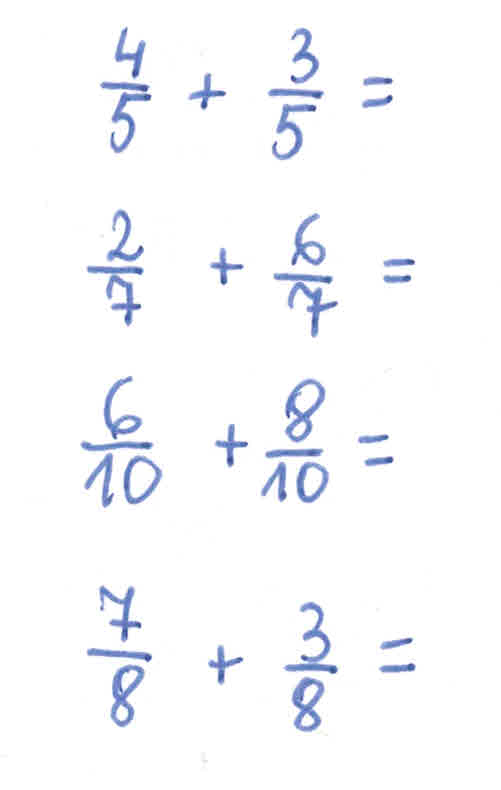 4/5 + 3/5 =
2/7 + 6/7 =
6/10 + 8/10 =
7/8 + 3/8 =